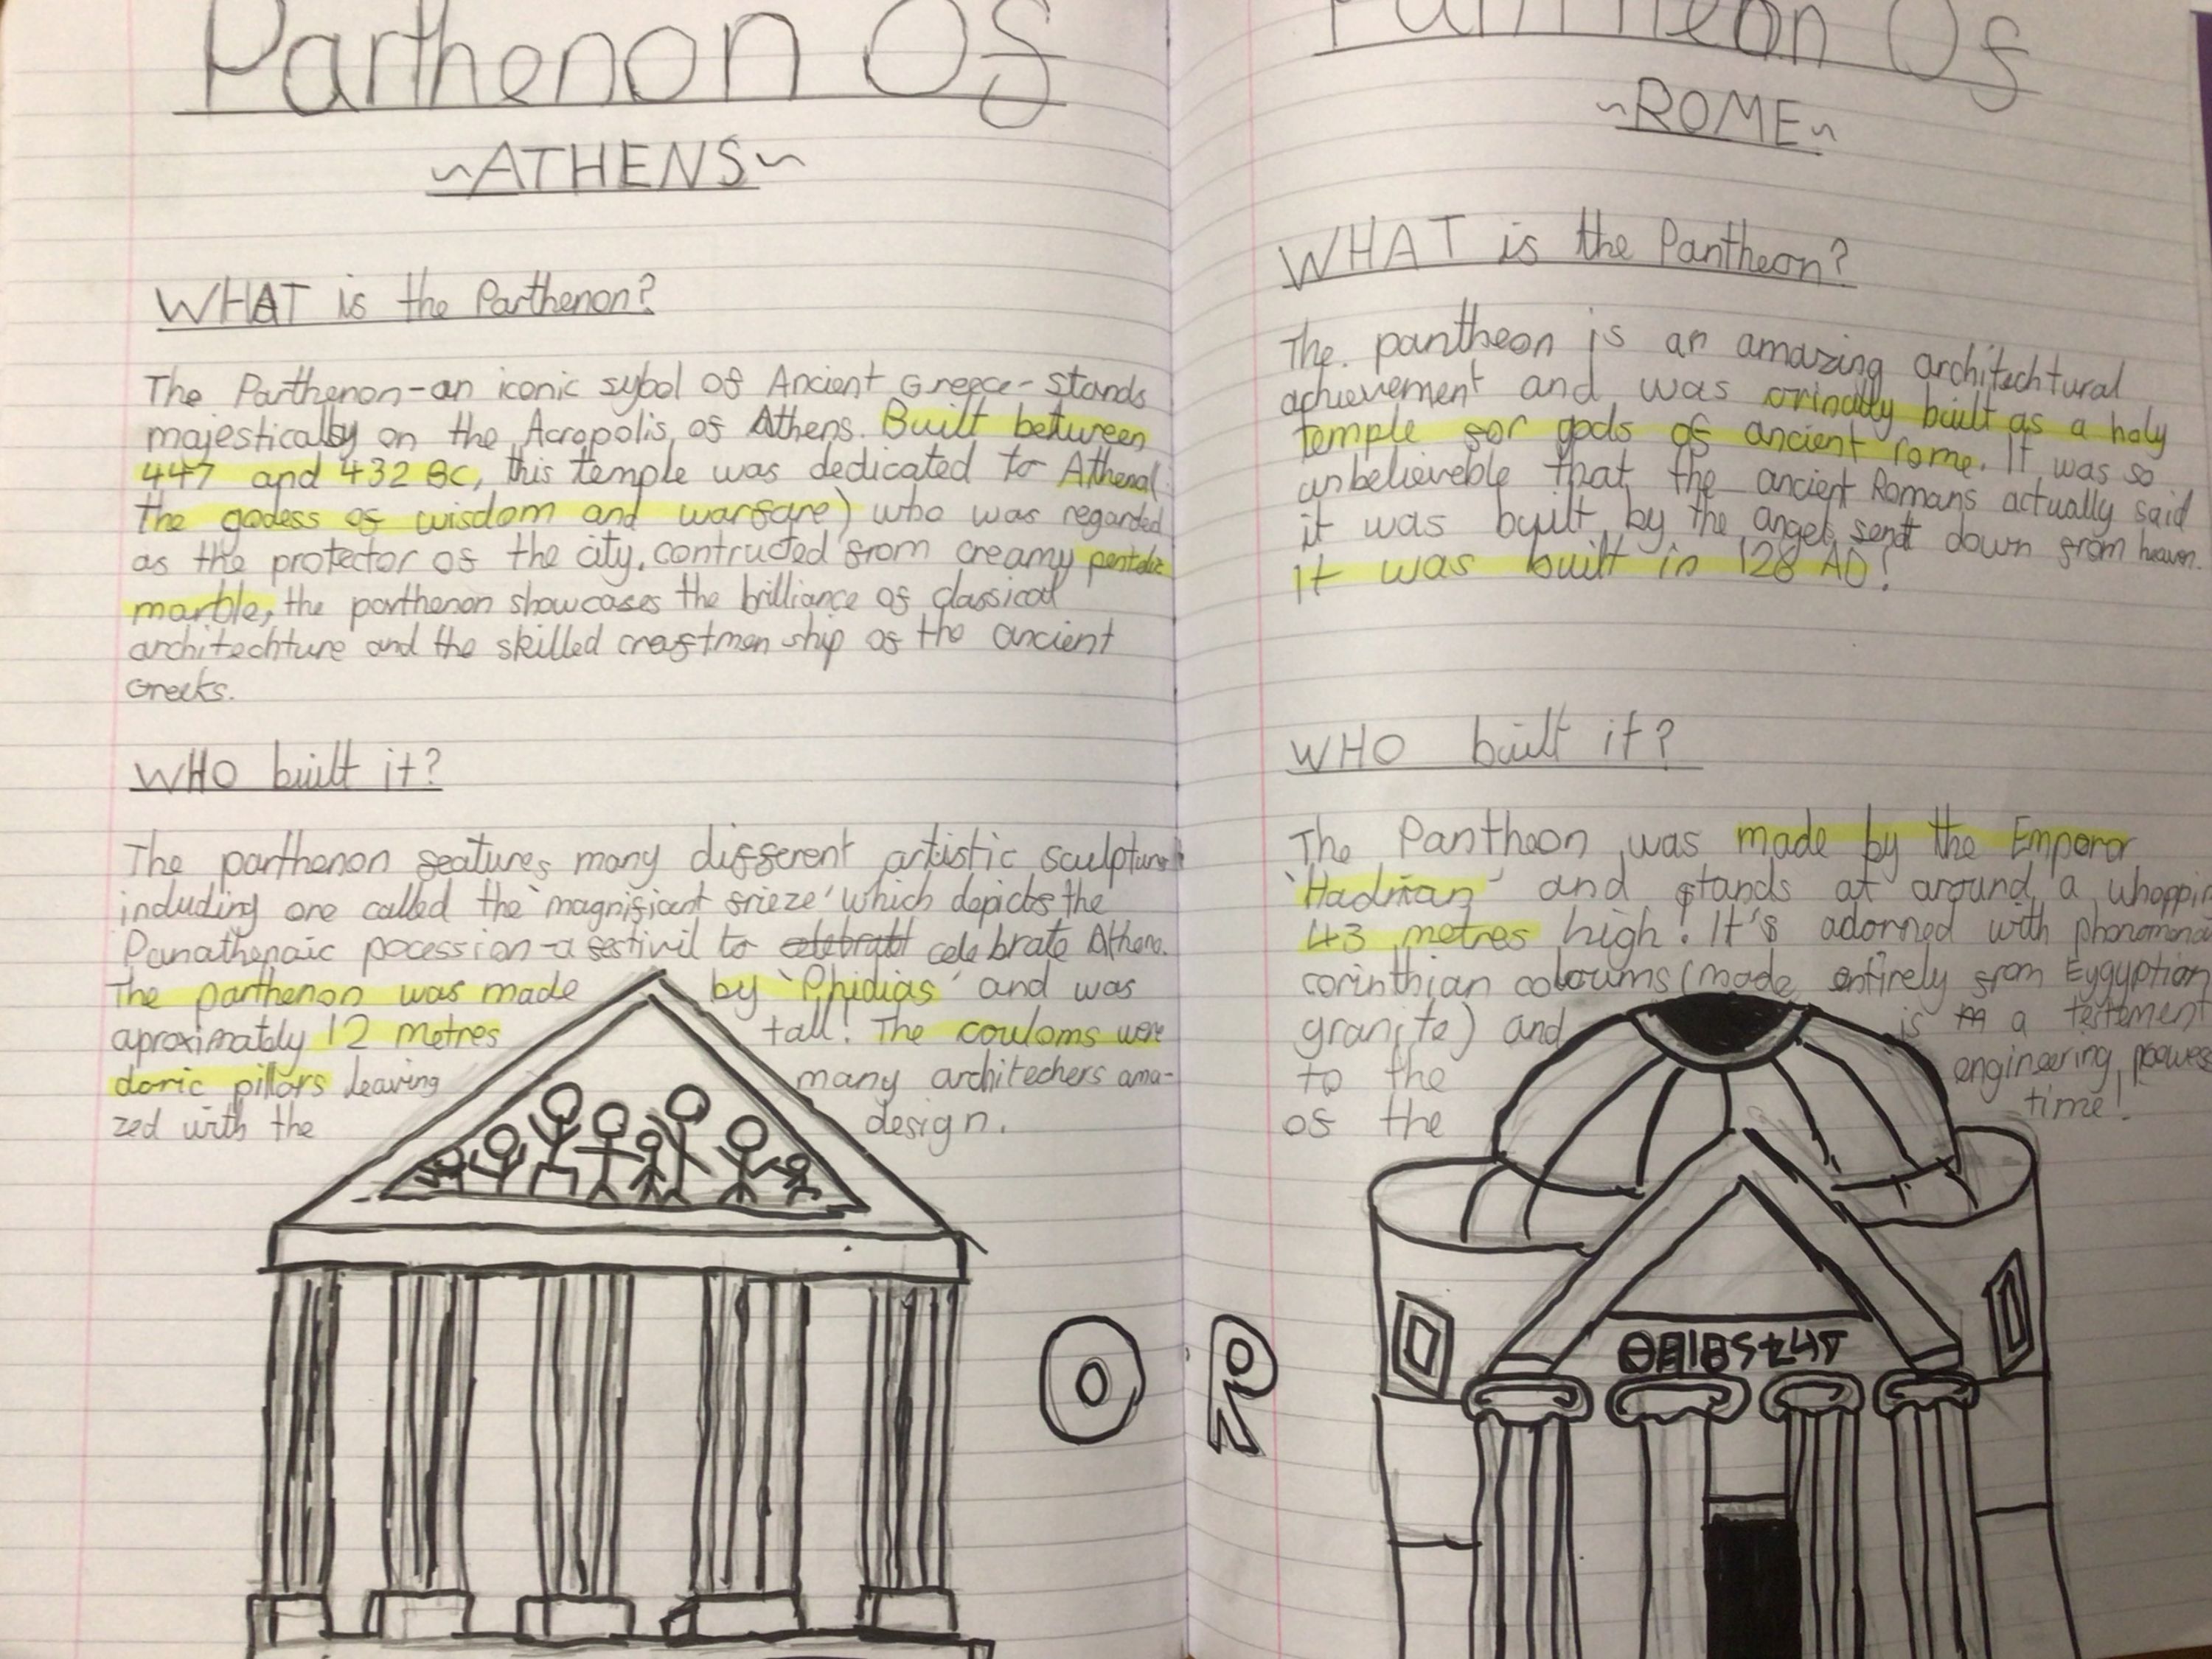 Parthenon Of
~ATHENS~
WHAT is the Parthenon?
The Parthenon-an iconic sybol of Ancient Greece- stands
majestically on the Acropolis, of Athens. Built between
447 and 432 BC, this temple was dedicated to Athena(
the godess of wisdom and warfare) who was regarded
as the protector of the city, contructed from creamy
marble, the parthenon showcases the brilliance of classical
architechture and the skilled craftman ship of the ancient
Greeks.
WHO built it?
The parthenon features many different artistic sculptures
including one called the 'magnificant frieze' which depicts the
Panathenaic pocession-a festivil to celebrate Athena.
The parthenon was made by 'Phidias' and was
aproximately 12 metres tall! The couloms were
doric pillars leaving many architechers ama-
zed with the design.
O
Pantheon Of
~ROME~
WHAT is the Pantheon?
The pantheon is an amazing architechtural
achievement and was orinally built as a holy
temple for gods of ancient rome. It was so
unbelieveble that the ancient Romans actually said
it was built by the angels sent down from heaven.
It was built in 128 AD!
WHO built it?
The Pantheon was made by the Emperor
'Hadrian' and stands at around a whoppin
43 metres high! It's adorned with phonomena
corinthian coloums (made entirely from Eygyptian
granite) and is a testement
to the engineering powes
of the time!
R